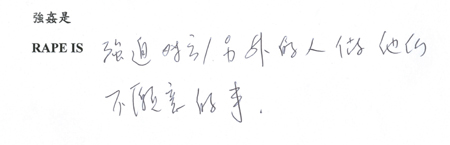 強姦是
RAPE IS 强迫对方/另外的人做他们
不愿意的事.